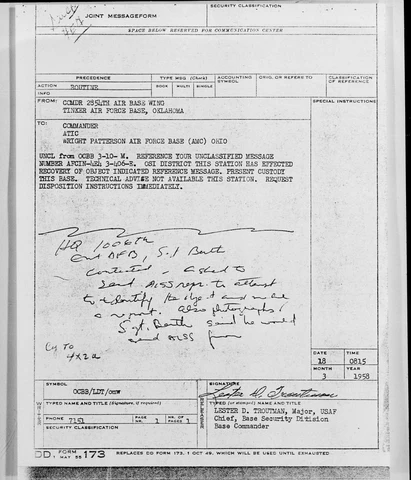 SECURITY CLASSIFICATION
JOINT MESSAGEFORM
SPACE BELOW RESERVED FOR COMMUNICATION CENTER
PRECEDENCE
TYPE MSG (Check)
ACCOUNTING SYMBOL
ORIG. OR REFERS TO
CLASSIFICATION OF REFERENCE
ACTION ROUTINE
BOOK MULTI SINGLE
INFO
FROM: COMDR 2854TH AIR BASE WING
TINKER AIR FORCE BASE, OKLAHOMA
SPECIAL INSTRUCTIONS
TO:
COMMANDER
ATIC
WRIGHT PATTERSON AIR FORCE BASE (AMC) OHIO
UNCL from OCBB 3-10- M. REFERENCE YOUR UNCLASSIFIED MESSAGE
NUMBER AFCIN-4E4 3-406-E. OSI DISTRICT THIS STATION HAS EFFECTED
RECOVERY OF OBJECT INDICATED REFERENCE MESSAGE. PRESENT CUSTODY
THIS BASE. TECHNICAL ADVICE NOT AVAILABLE THIS STATION. REQUEST
DISPOSITION INSTRUCTIONS IMMEDIATELY.
HQ 1006th
Ent AFB, Sgt Barth
contacted, asked to
send AISS repr. to attempt
to identify the object and make
a report. Also photographs/
Sgt. Barth said he would
send AISS from
Cy to
4x2a
DATE TIME
18 0815
MONTH YEAR
3 1958
SYMBOL
OCBB/LDT/omw
SIGNATURE
Lester D. Troutman
TYPED NAME AND TITLE (Signature, if required)
TYPED (or stamped) NAME AND TITLE
LESTER D. TROUTMAN, Major, USAF
Chief, Base Security Division
Base Commander
PHONE 7151
PAGE NR. 1
NR. OF PAGES 1
SECURITY CLASSIFICATION
DD FORM MAY 55 173
REPLACES DD FORM 173, 1 OCT 49, WHICH WILL BE USED UNTIL EXHAUSTED